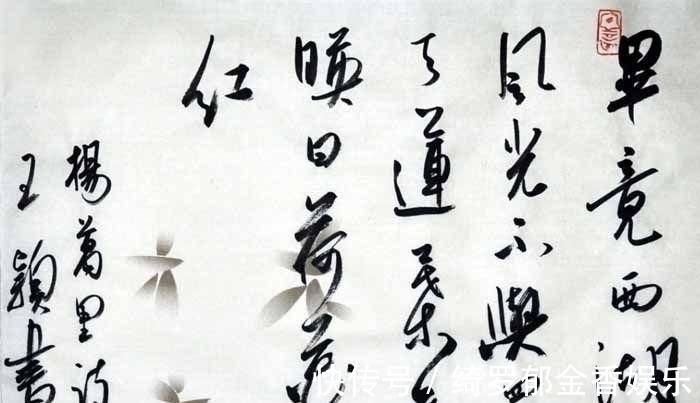 畢竟西湖
风光不與
天蓮葉
暎日荷花
红
楊萬里詩
王穎書
快传号 / 绮罗郁金香娱乐